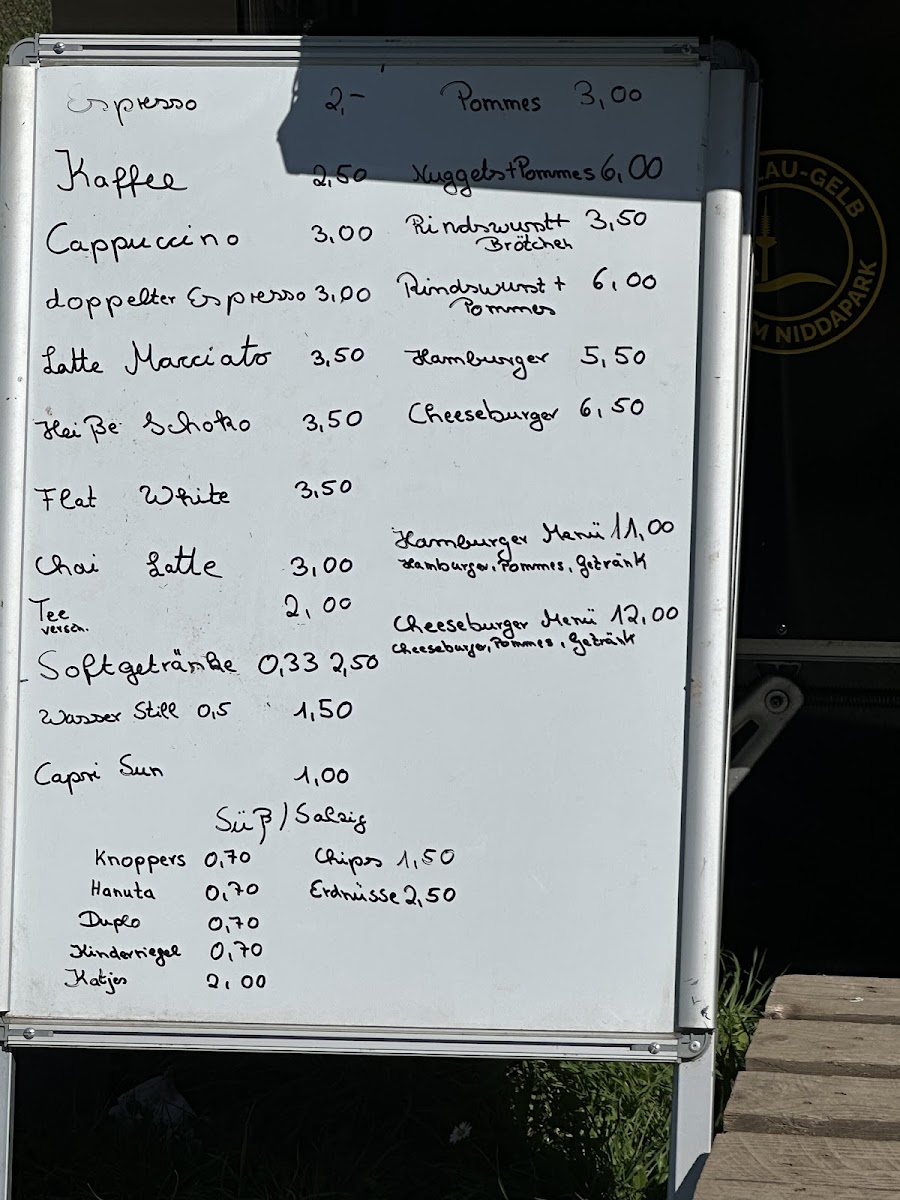 Espresso 2,-
Kaffee 2,50
Cappuccino 3,00
doppelter Espresso 3,00
Latte Macciato 3,50
Heiße Schoko 3,50
Flat White 3,50
Chai Latte 3,00
Tee 2,00
versch.
Softgetränke 0,33 2,50
Wasser Still 0,5 1,50
Capri Sun 1,00
Pommes 3,00
Nuggets+Pommes 6,00
Rindswurst+ 3,50
Brötchen
Rindswurst+ 6,00
Pommes
Hamburger 5,50
Cheeseburger 6,50
Hamburger Menü 11,00
Hamburger, Pommes, Getränk
Cheeseburger Menü 12,00
Cheeseburger, Pommes, Getränk
Süß/Salzig
Knoppers 0,70
Hanuta 0,70
Duplo 0,70
Kinderriegel 0,70
Katjes 2,00
Chips 1,50
Erdnüsse 2,50
LAU-GELB
M NIDDAPARK